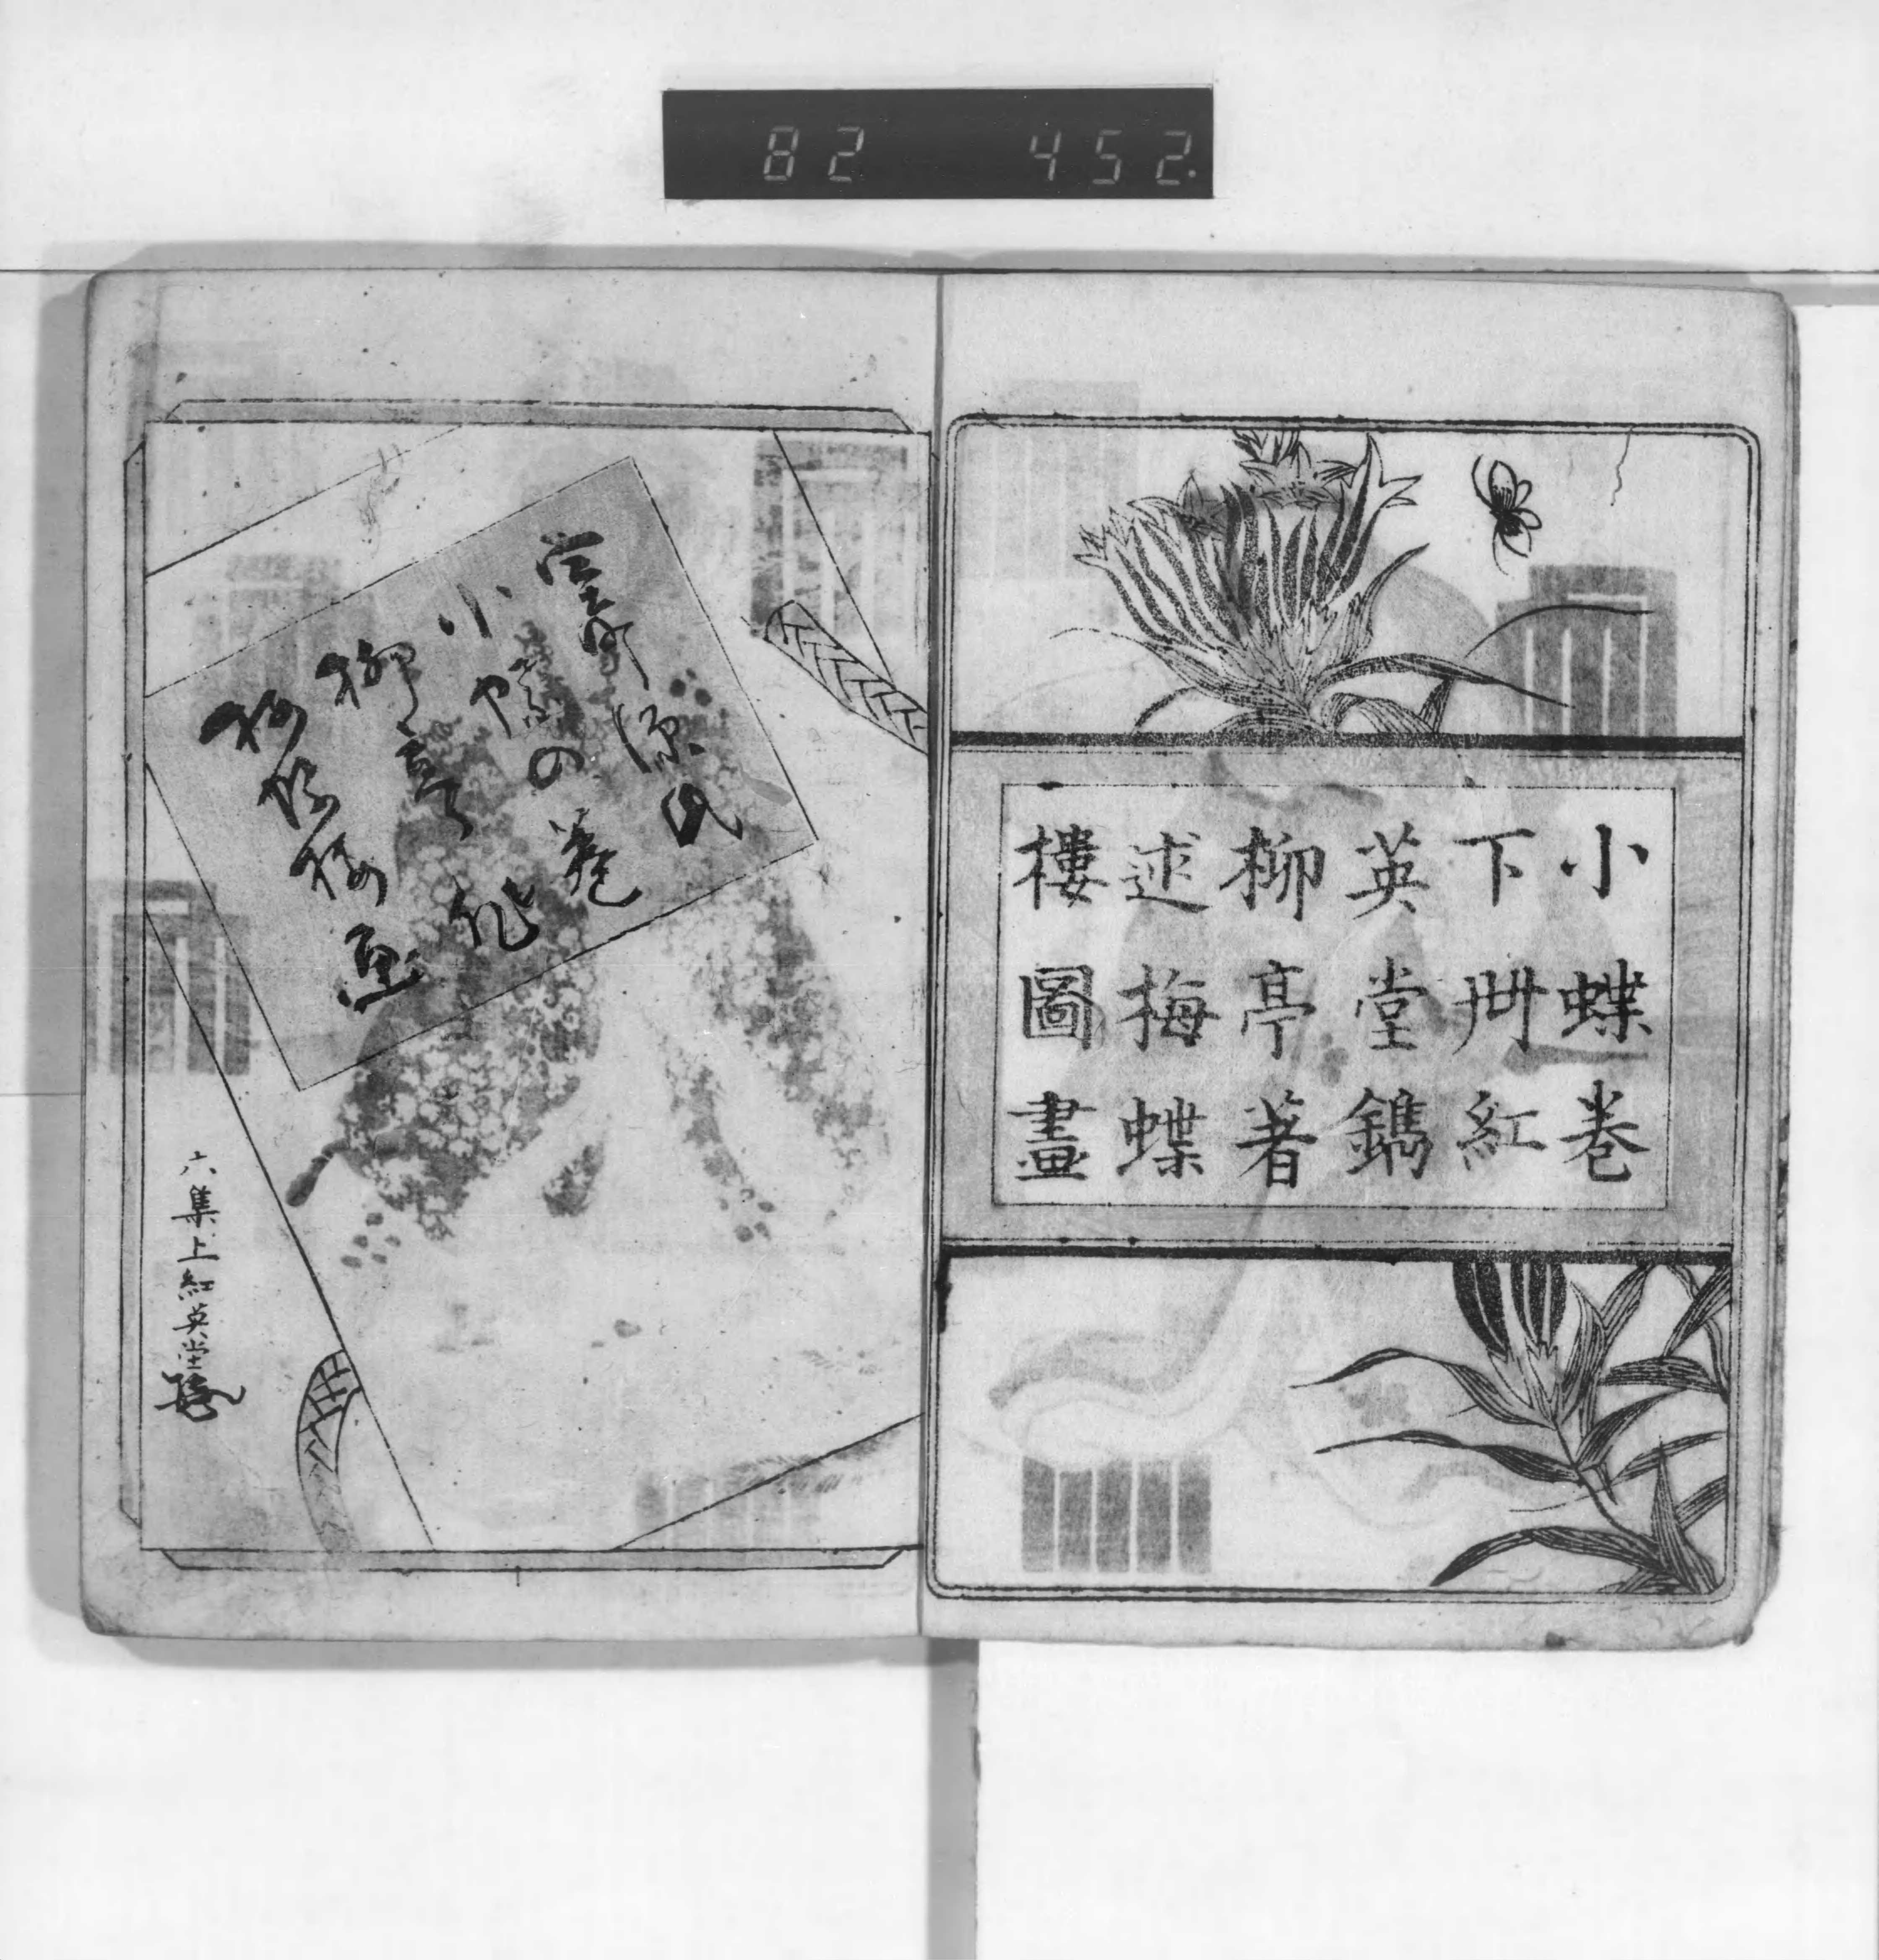 82 452
小蝶巻
下卌紅
英堂鐫
柳亭著
述梅蝶
樓圖畫
室町源氏
小蝶の巻
柳亭
梅蝶楼画
六集上紅英堂